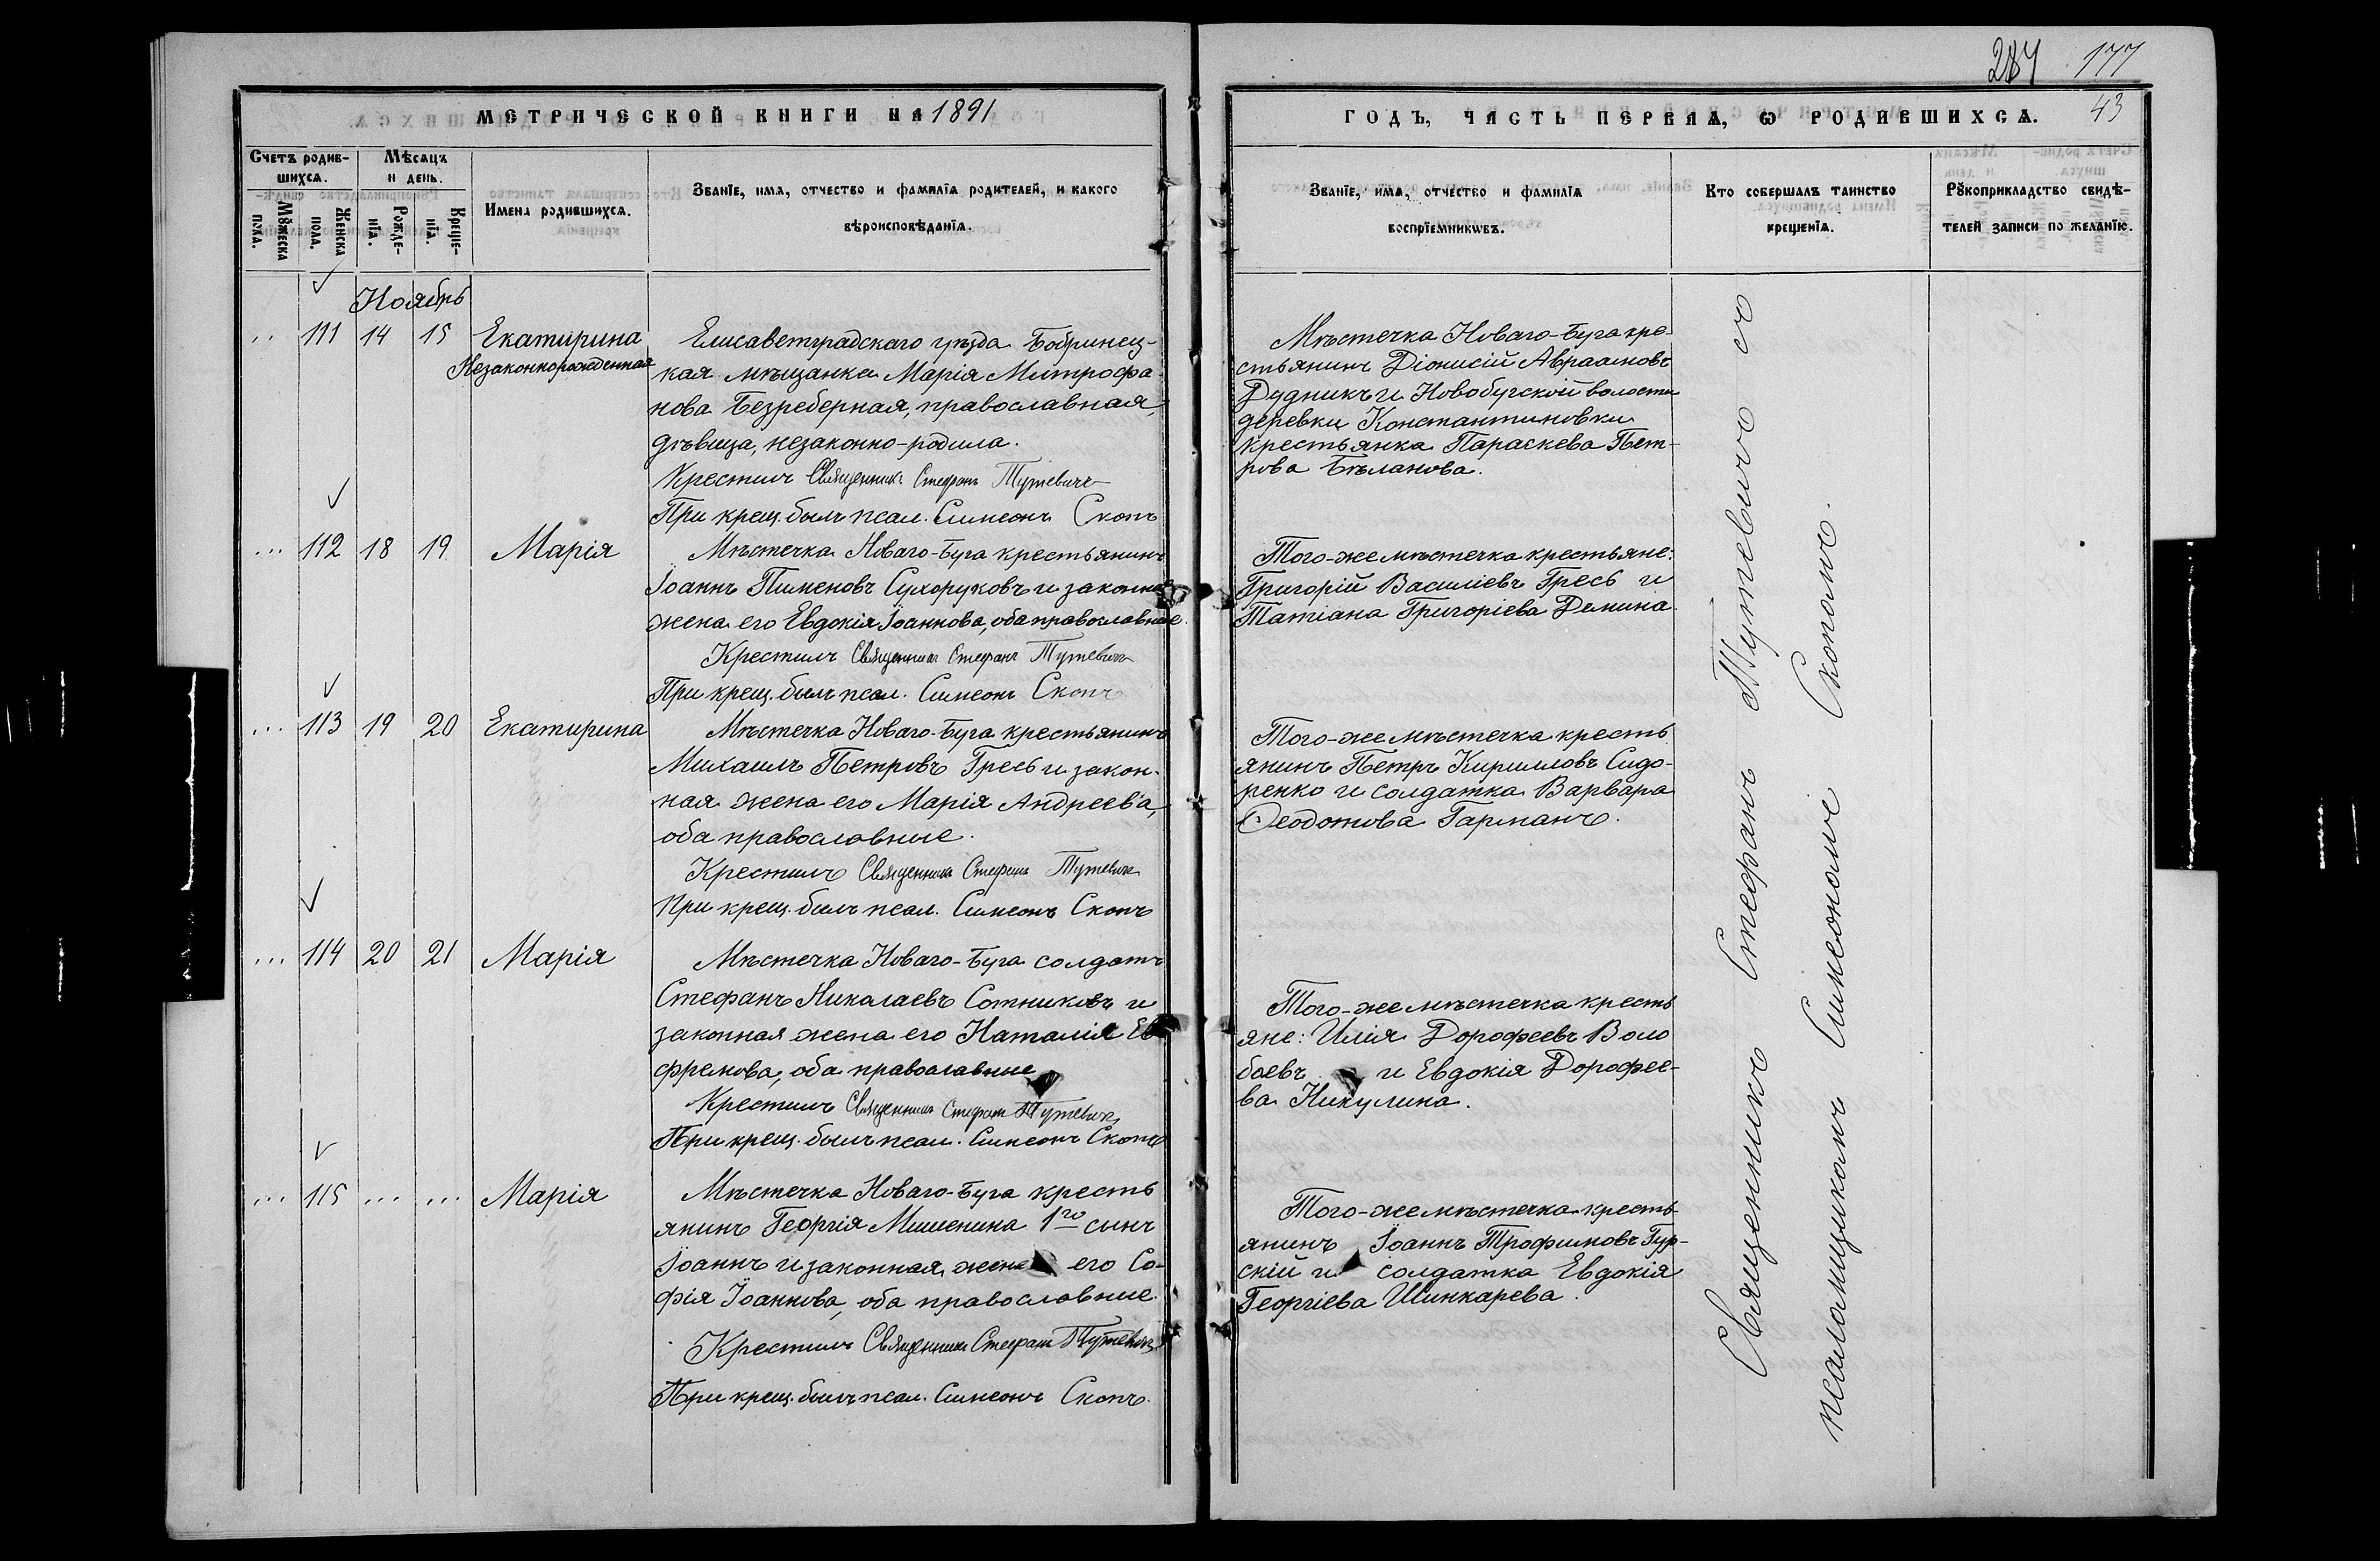 284 177
МЕТРИЧЕСКОЙ КНИГИ НА 1891
ГОДЪ, ЧАСТЬ ПЕРВАЯ, Ѡ РОДИВШИХСЯ.
43
Счетъ родив-
шихся.
Мѣсяцъ
и день.
Мꙋжеска
пола.
Женска
пола.
Рожде-
нїя.
Креще-
нїя.
Имена родившихся.
Званїе, имя, отчество и фамилїя родителей, и какого
вѣроисповѣданїя.
Званїе, имя, отчество и фамилїя
воспрїемникѡвъ.
Кто совершалъ таинство
крещенїя.
Рꙋкоприкладство свидѣ-
телей записи по желанїю.
Ноябрь
.. 111 14 15 Екатирина
Незаконнорожденная
Елисаветградскаго уѣзда Бобринец-
кая мѣщанка Марія Митрофа
нова Безреберная, православная,
дѣвица, незаконно-родила.
Крестилъ Священникъ Стефанъ Тутевичъ
При крещ. былъ псал. Симеонъ Скопъ
Мѣстечка Новаго-Буга кре-
стьянинъ Діонисій Авраамовъ
Дудникъ и Новобугской волости
деревки Константиновки
крестьянка Параскева Пет-
рова Бѣланова.
... 112 18 19 Марія
Мѣстечка Новаго-Буга крестьянинъ
Іоаннъ Пименовъ Сухоруковъ и законная
жена его Евдокія Іоаннова, оба православные.
Крестилъ Священникъ Стефанъ Тутевичъ
При крещ. былъ псал. Симеонъ Скопъ
Того-же мѣстечка крестьяне:
Григорій Василіевъ Гресь и
Татіана Григоріева Демина
... 113 19 20 Екатирина
Мѣстечка Новаго-Буга крестьянинъ
Михаилъ Петровъ Гресь и закон-
ная жена его Марія Андреева,
оба православные.
Крестилъ Священникъ Стефанъ Тутевичъ
При крещ. былъ псал. Симеонъ Скопъ
Того-же мѣстечка кресть
янинъ Петръ Кирилловъ Сидо-
ренко и солдатка Варвара
Ѳеодотова Гарманъ.
... 114 20 21 Марія
Мѣстечка Новаго-Буга солдатъ
Стефанъ Николаевъ Сотниковъ и
законная жена его Наталія Ев
фремова, оба православные
Крестилъ Священникъ Стефанъ Тутевичъ
При крещ. былъ псал. Симеонъ Скопъ
Того-же мѣстечка кресть
яне: Илія Дорофеевъ Воло
боевъ и Евдокія Дорофее-
ва Никулина.
... 115 ... ... Марія
Мѣстечка Новаго-Буга кресть
янинъ Георгія Мишенина 1го сынъ
Іоаннъ и законная жена его Со-
фія Іоаннова, оба православные.
Крестилъ Священникъ Стефанъ Тутевичъ
При крещ. былъ псал. Симеонъ Скопъ.
Того-же мѣстечка кресть-
янинъ Іоаннъ Трофимовъ Гур-
скій и солдатка Евдокія
Георгіева Шинкарева.
Священникъ Стефанъ Тутевичъ съ
псаломщикомъ Симеономъ Скопомъ.